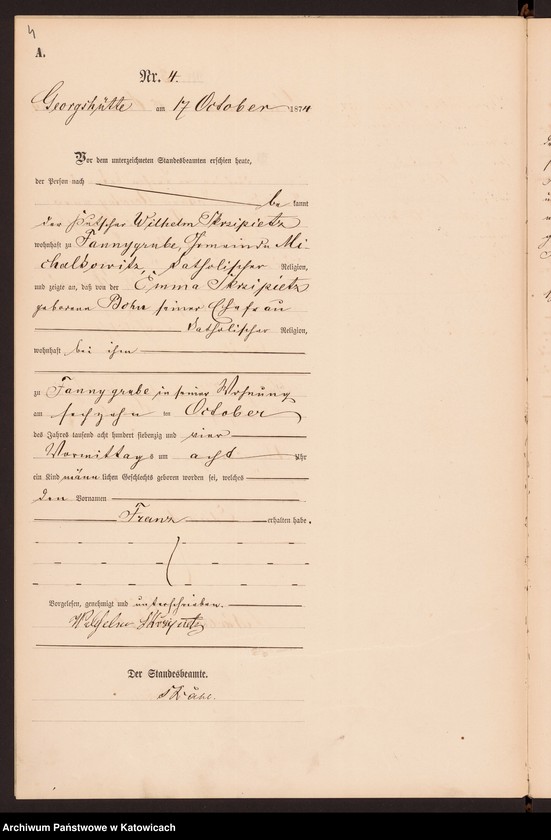 4
A.
Nr. 4.
Georgshütte am 17 October 1874
Vor dem unterzeichneten Standesbeamten erschien heute,
der Person nach
be kannt
der Kutscher Wilhelm Skrzipietz
wohnhaft zu Fannygrube, Gemeinde Mi-
chalkowitz, katholischer Religion,
und zeigte an, daß von der Emma Skrzipietz
geborene Bohn seiner Ehefrau
katholischer Religion,
wohnhaft bei ihm
zu Fannygrube in seiner Wohnung
am sechzehn ten October
des Jahres tausend acht hundert siebenzig und vier
Vormittags um acht Uhr
ein Kind männ lichen Geschlechts geboren worden sei, welches
den Vornamen
Franz erhalten habe.
Vorgelesen, genehmigt und unterschrieben.
Wilhelm Skrzipietz
Der Standesbeamte.
Archiwum Państwowe w Katowicach